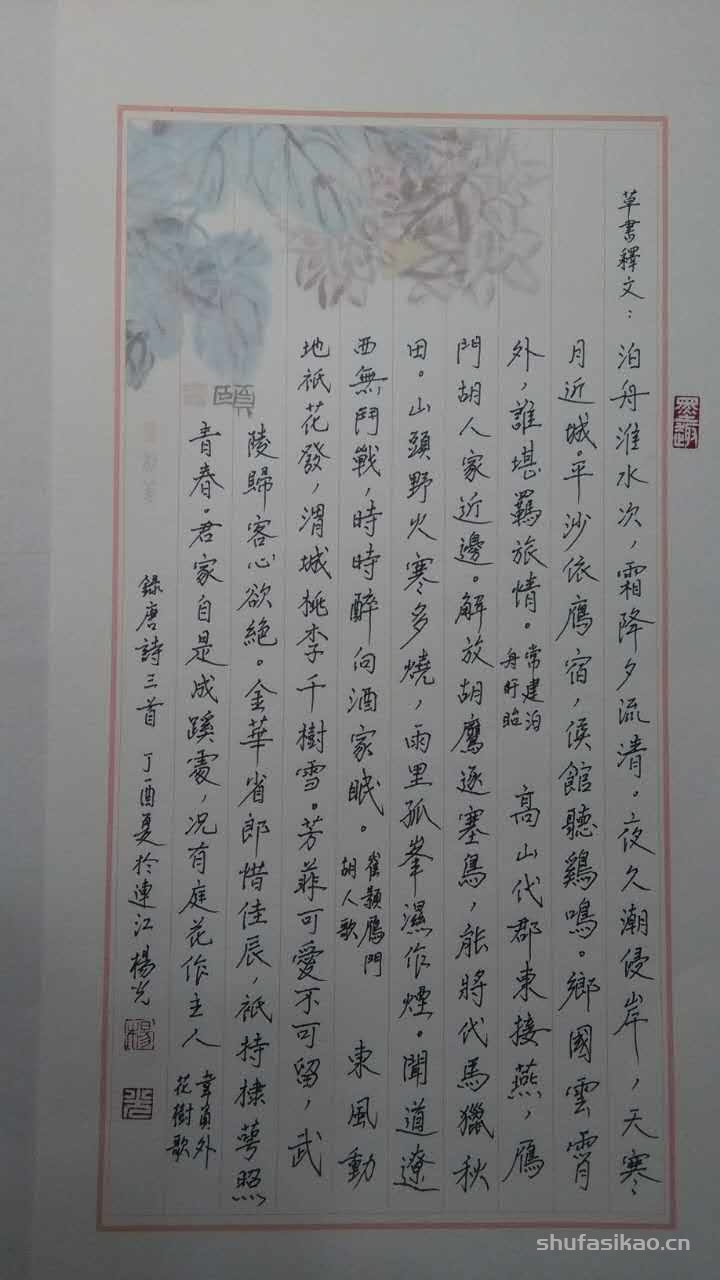 草書釋文：泊舟淮水次，霜降夕流清。夜久潮侵岸，天寒
月近城。平沙依鴈宿，候館聽鷄鳴。鄉國雲霄
外，誰堪羁旅情。常建泊舟盱眙 高山代郡東接燕，鴈
門胡人家近邊。解放胡鷹逐塞鳥，能將代馬獵秋
田。山頭野火寒多燒，雨里孤峯濕作煙。聞道遼
西無鬥戰，時時醉向酒家眠。崔顥鴈門胡人歌 東風動
地祇花發，渭城桃李千樹雪。芳菲可愛不可留，武
陵歸客心欲絶。金華省郎惜佳辰，祇持棣萼照
青春。君家自是成蹊處，况有庭花作主人 韋員外花樹歌
錄唐詩三首 丁酉夏於連江楊光
頤
墨趣
楊
光
shufasikao.cn